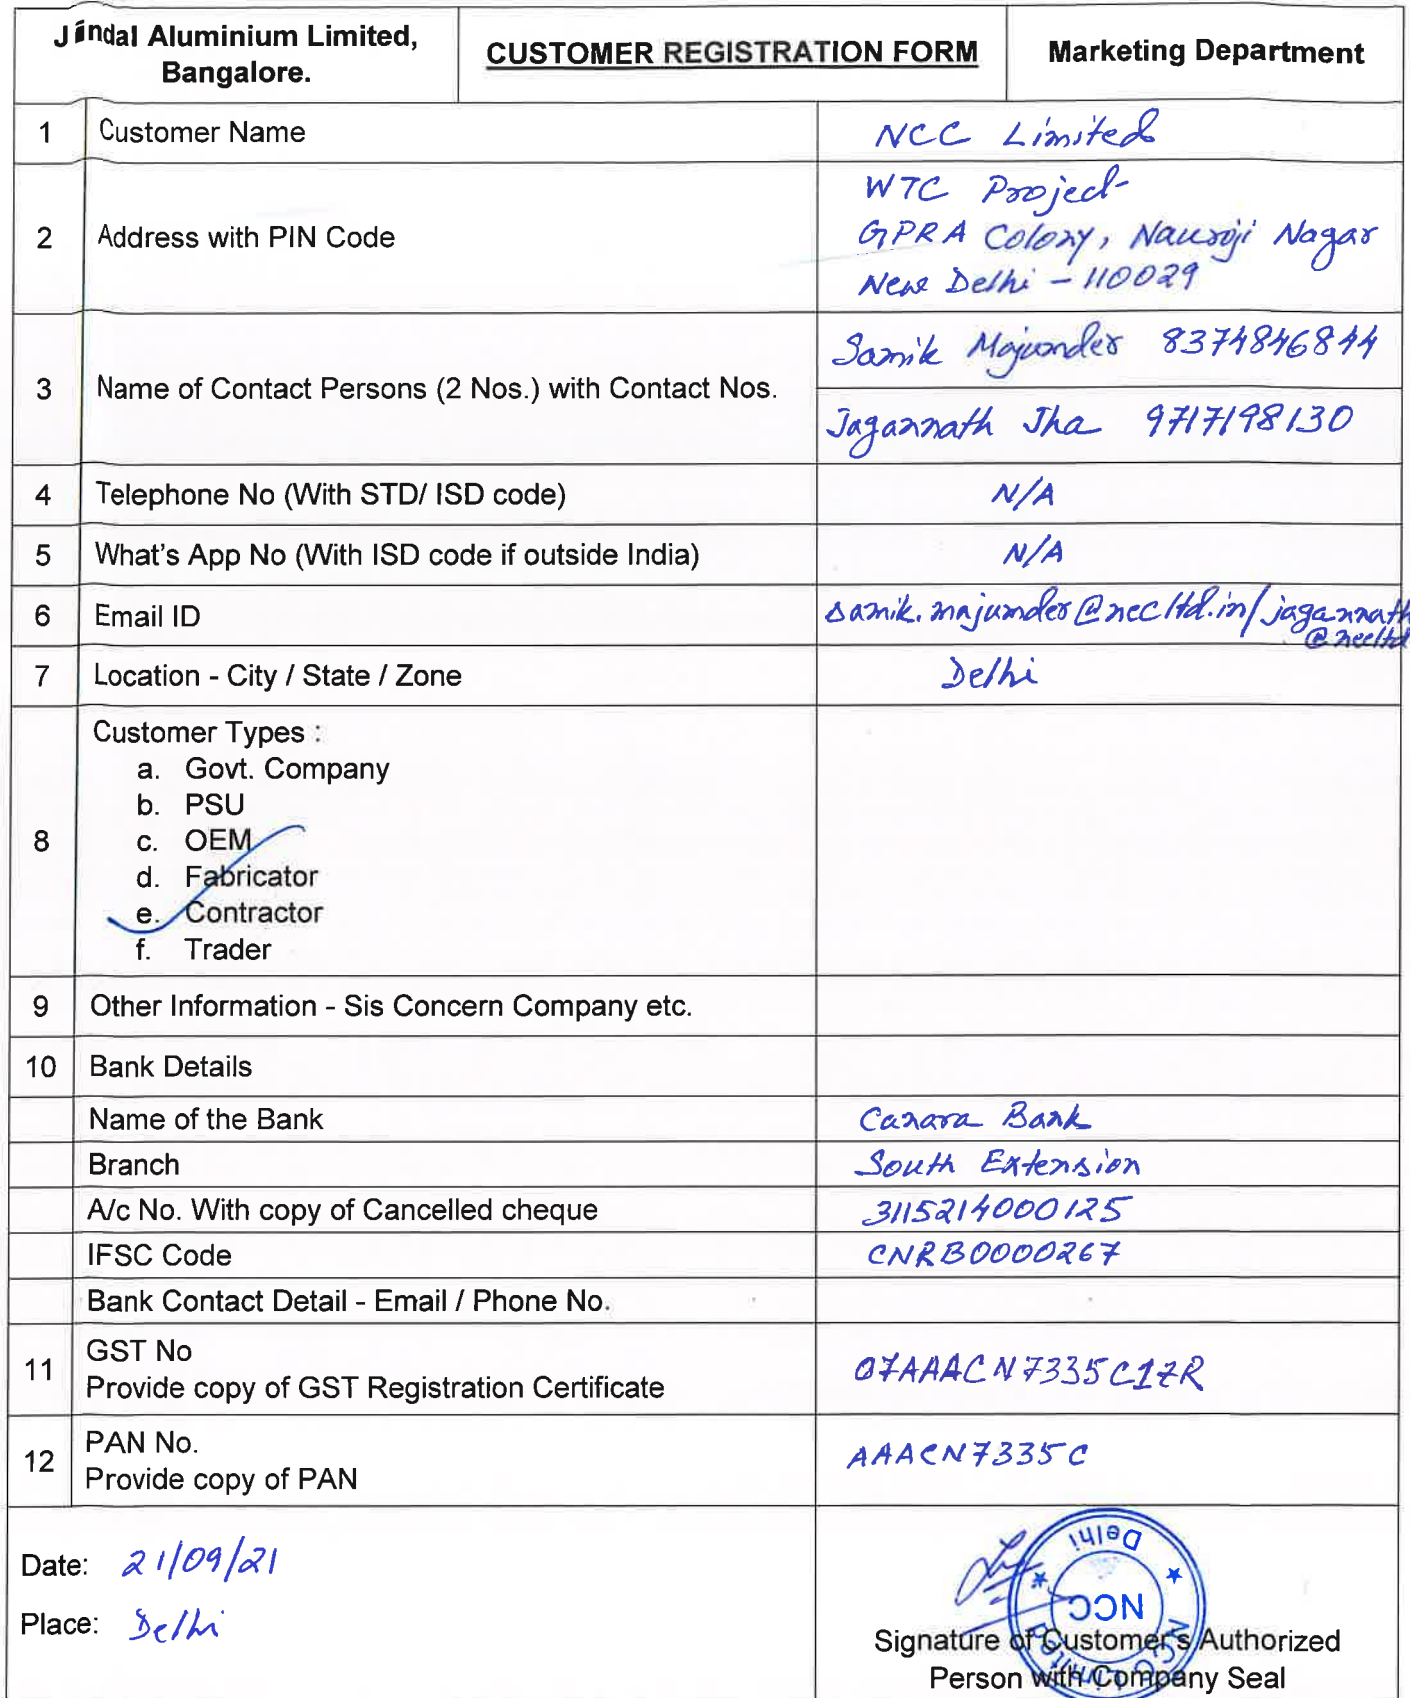 Jindal Aluminium Limited,
Bangalore.
CUSTOMER REGISTRATION FORM
Marketing Department
1 Customer Name NCC Limited
2 Address with PIN Code WTC Project
GPRA Colony, Nauroji Nagar
New Delhi - 110029
3 Name of Contact Persons (2 Nos.) with Contact Nos. Samik Majumder 8374846844
Jagannath Jha 9717198130
4 Telephone No (With STD/ ISD code) N/A
5 What's App No (With ISD code if outside India) N/A
6 Email ID samik.majumder@nccltd.in/jagannath
@nccltd
7 Location - City / State / Zone Delhi
8 Customer Types :
a. Govt. Company
b. PSU
c. OEM
d. Fabricator
e. Contractor
f. Trader
9 Other Information - Sis Concern Company etc.
10 Bank Details
Name of the Bank Canara Bank
Branch South Extension
A/c No. With copy of Cancelled cheque 3115214000125
IFSC Code CNRB0000267
Bank Contact Detail - Email / Phone No.
11 GST No
Provide copy of GST Registration Certificate 07AAACN7335C1ZR
12 PAN No.
Provide copy of PAN AAACN7335C
Date: 21/09/21
Place: Delhi
NCC Limited
Delhi
NCC
Signature of Customer's Authorized
Person with Company Seal